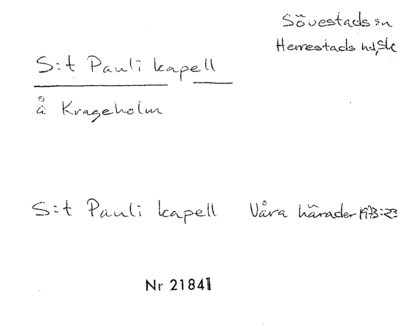 Sövestads sn
Herrestads hd, Sk
S:t Pauli kapell
å Krageholm
S:t Pauli kapell Våra härader 1973:23
Nr 21841